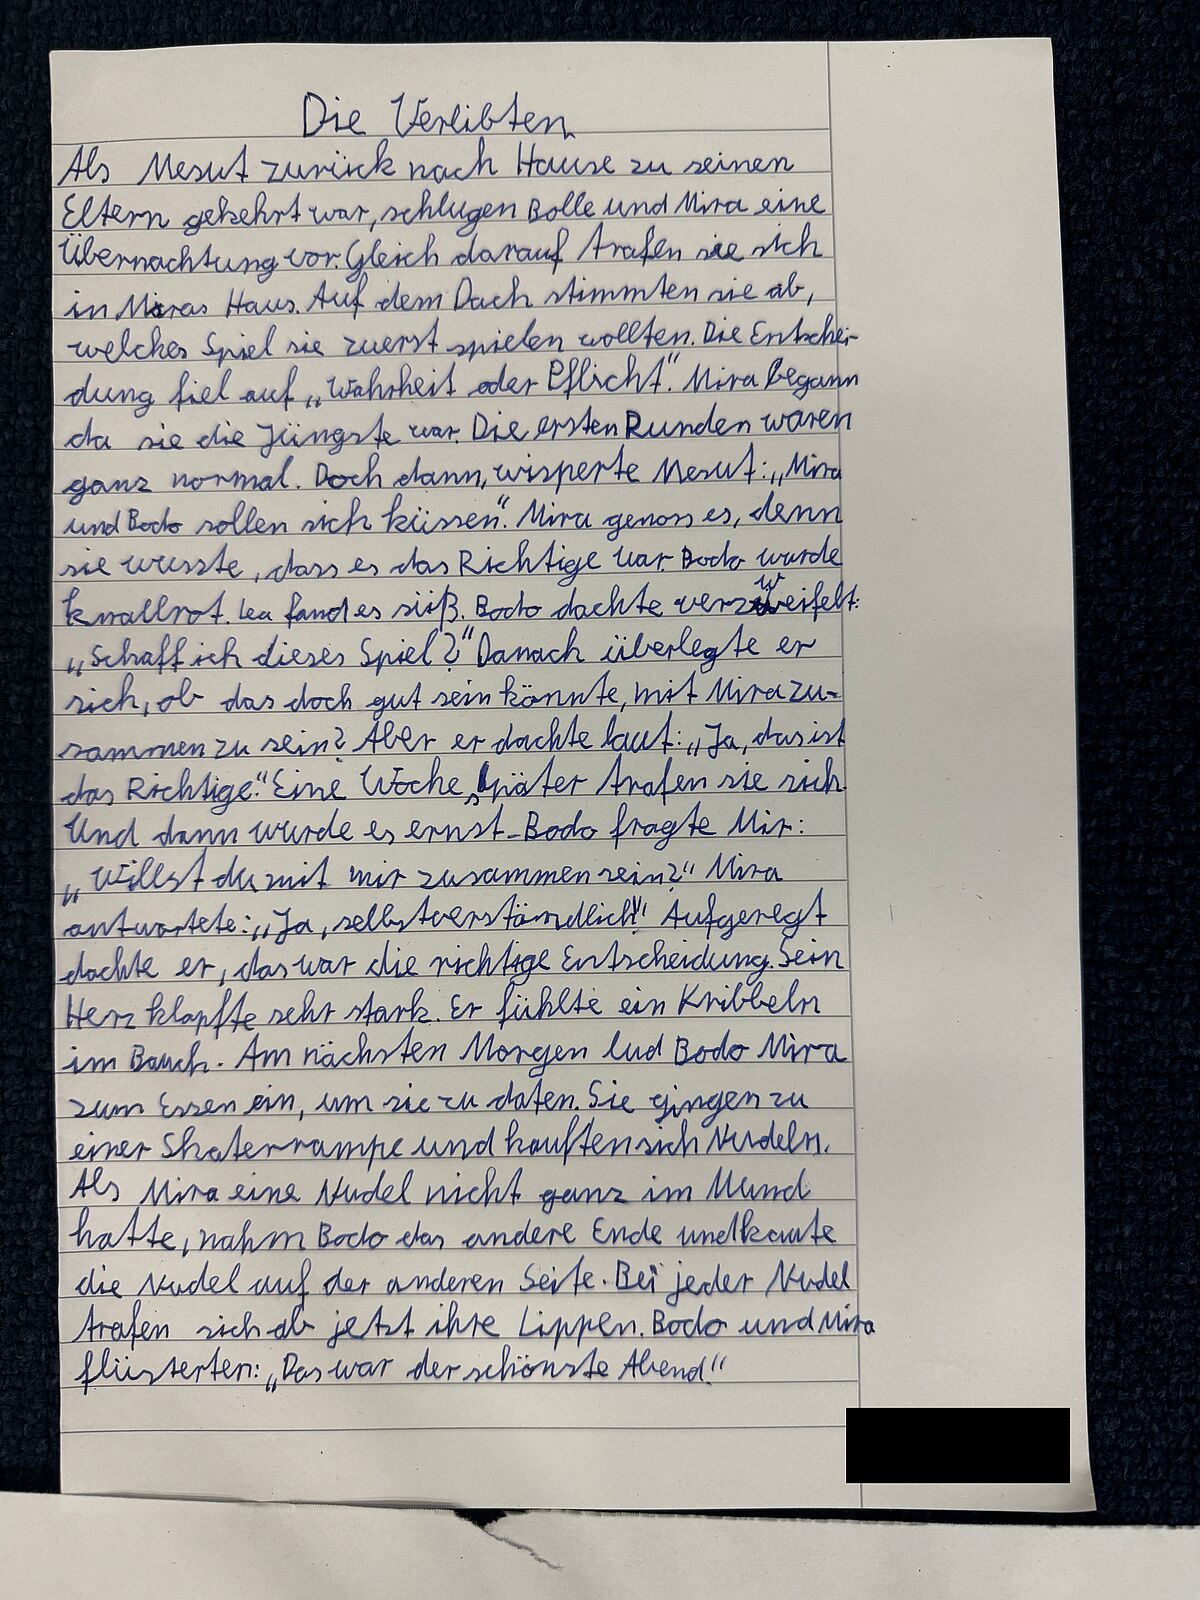 Die Verlibten
Als Mesut zurück nach Hause zu seinen
Eltern gekehrt war, schlugen Bolle und Mira eine
Übernachtung vor. Gleich darauf trafen sie sich
in Miras Haus. Auf dem Dach stimmten sie ab,
welches Spiel sie zuerst spielen wollten. Die Entschei-
dung fiel auf „Wahrheit oder Pflicht“. Mira begann
da sie die Jüngste war. Die ersten Runden waren
ganz normal. Doch dann, wisperte Mesut: „Mira
und Bodo sollen sich küssen“. Mira genoss es, denn
sie wusste, dass es das Richtige war. Bodo wurde
knallrot. Lea fand es süß. Bodo dachte verzweifelt:
„Schaff ich dieses Spiel?“ Danach überlegte er
sich, ob das doch gut sein könnte, mit Mira zu-
sammen zu sein? Aber er dachte laut: „Ja, das ist
das Richtige.“ Eine Woche später trafen sie sich.
Und dann wurde es ernst. Bodo fragte Mir:
„Willst du mit mir zusammen sein?“ Mira
antwortete: „Ja, selbstverständlich!“ Aufgeregt
dachte er, das war die richtige Entscheidung. Sein
Herz klopfte sehr stark. Er fühlte ein Kribbeln
im Bauch. Am nächsten Morgen lud Bodo Mira
zum Essen ein, um sie zu daten. Sie gingen zu
einer Skaterrampe und kauften sich Nudeln.
Als Mira eine Nudel nicht ganz im Mund
hatte, nahm Bodo das andere Ende und kaute
die Nudel auf der anderen Seite. Bei jeder Nudel
trafen sich ab jetzt ihre Lippen. Bodo und Mira
flüsterten: „Das war der schönste Abend.“